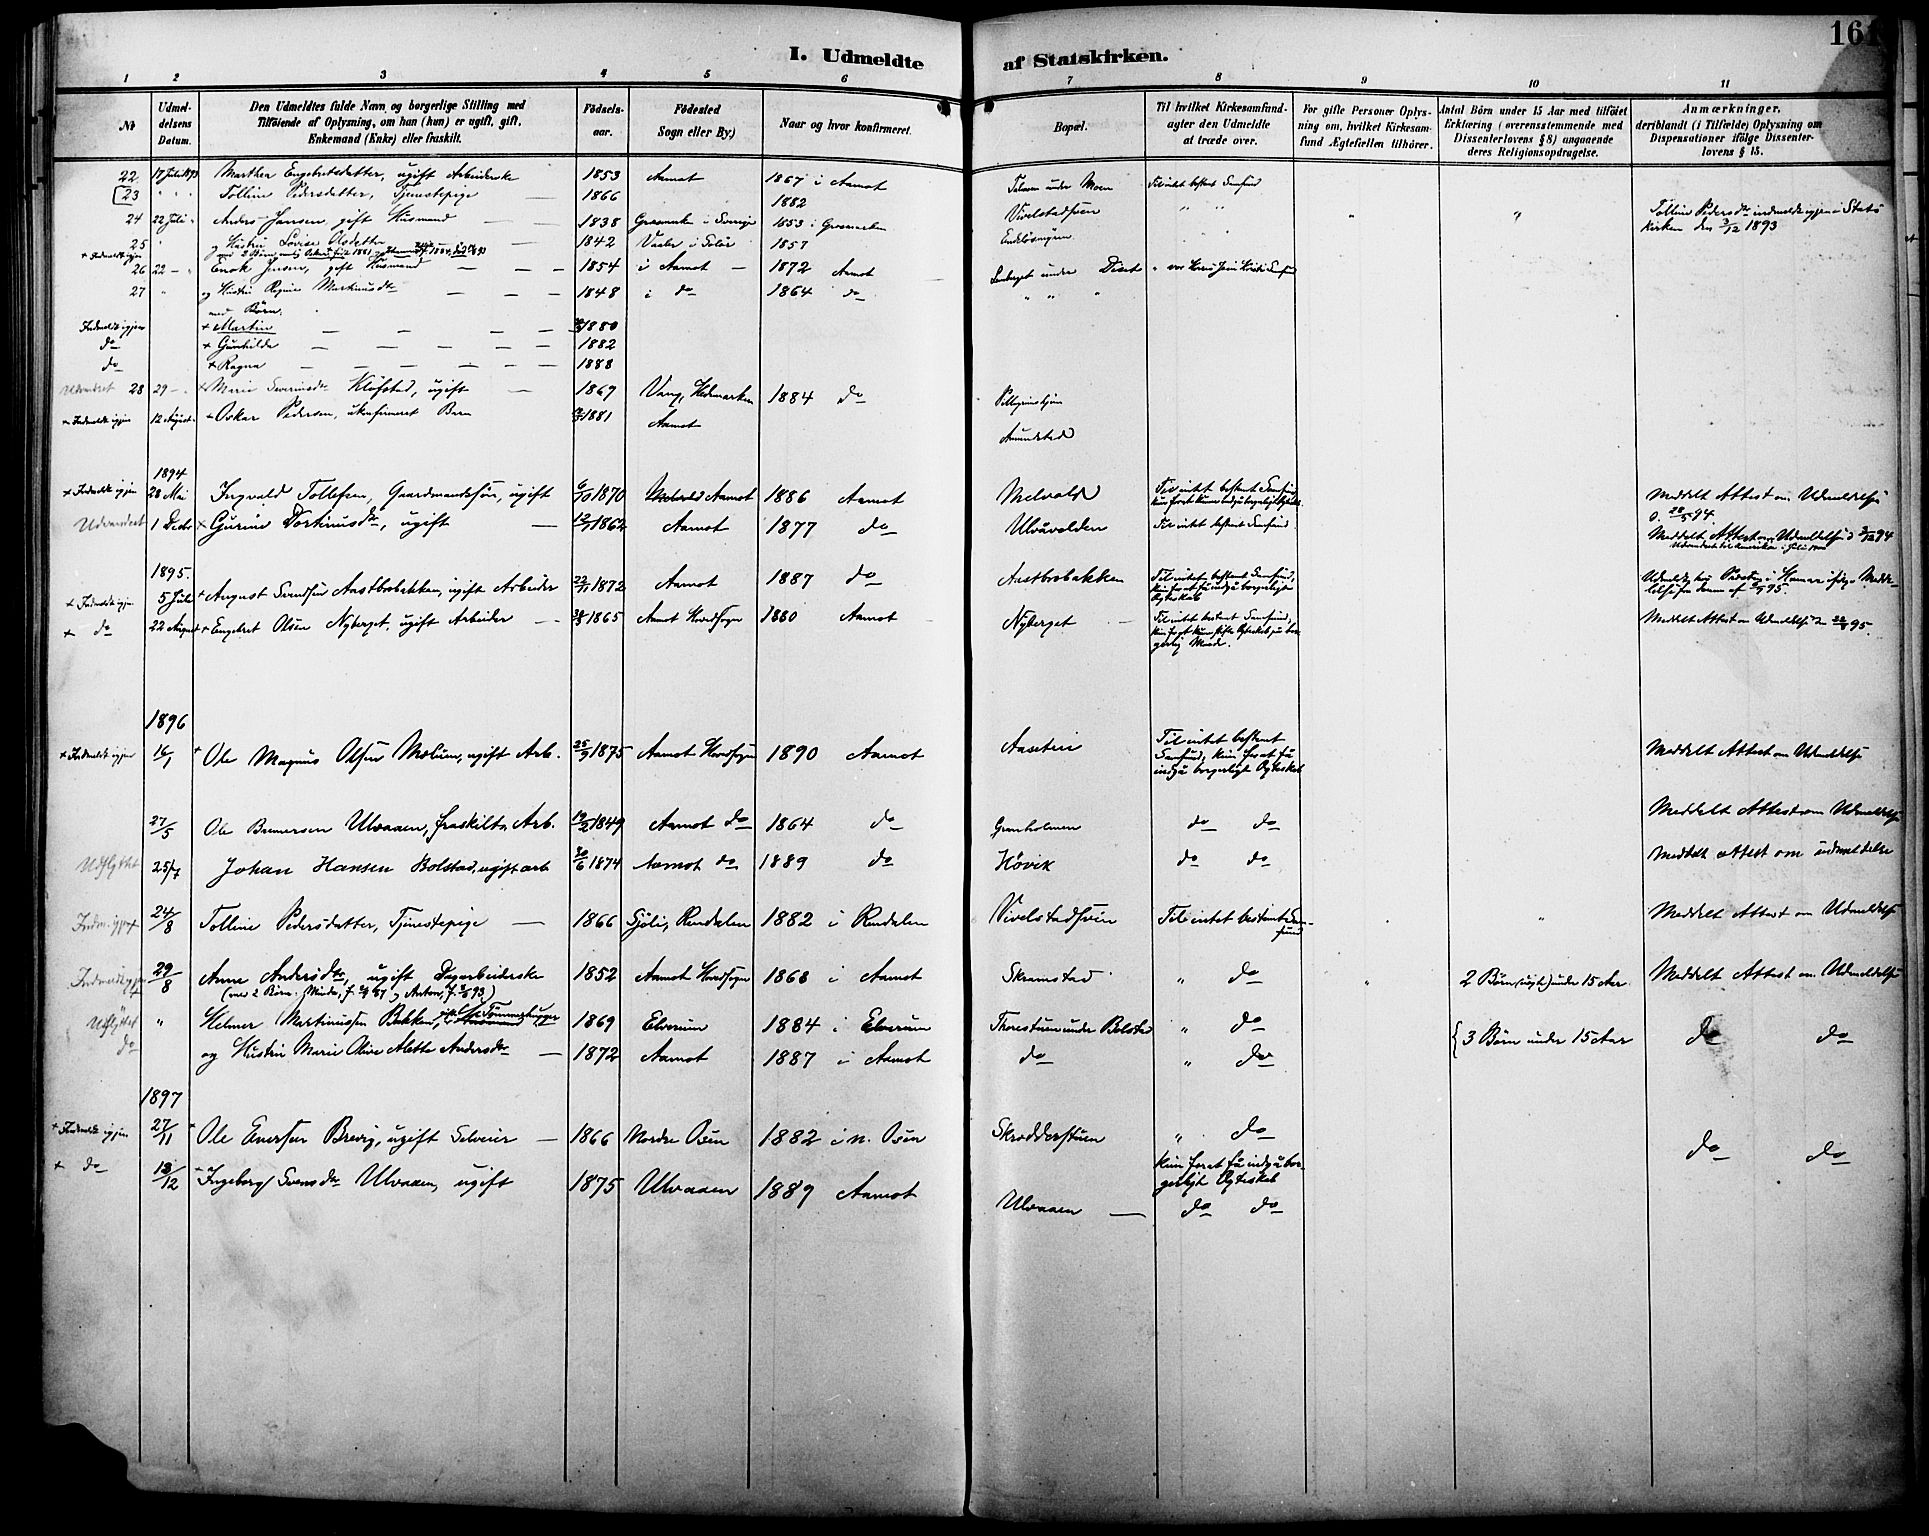 I. Udmeldte af Statskirken.
161
1 2 3 4 5 6 7 8 9 10 11
No
Udmeldelsens Datum.
Den Udmeldtes fulde Navn og borgerlige Stilling med
Tilföiende af Oplysning, om han (hun) er ugift, gift,
Enkemand (Enke) eller fraskilt.
Födselsaar.
Födested
Sogn eller By.)
Naar og hvor konfirmeret.
Bopæl.
Til hvilket Kirkesamfund
agter den Udmeldte
at træde over.
For gifte Personer Oplys-
ning om, hvilket Kirkesam-
fund Ægtefællen tilhörer.
Antal Börn under 15 Aar med tilföiet
Erklæring (overensstemmende med
Dissenterlovens § 8) angaaende
deres Religionsopdragelse.
Anmærkninger,
deriblandt (i Tilfælde) Oplysning om
Dispensationer ifölge Dissenter-
lovens § 15.
22 17 Juli 1893 Marthea Engebretsdatter, ugift Arbeiderske 1853 Aamot 1867 i Aamot under Moen Til intet bestemt Samfund
23 " " " Tolline Pedersdatter, Tjenestepige — 1866 1882 Vivelstadsveen " " Tolline Pedersdtr indmeldt igjen i Stats
kirken den 3/12 1893
24 22 Juli " Anders Jansen, gift Husmand — 1838 i Sverige 1853 i "
25 " og Hustru Lovise Olsdatter — 1842 Vaaler i Solör 1857
+ Indmeldt igjen
26 22 — " Enok Jensen, gift Husmand — 1854 i Aamot — 1872 Aamot under Diset
27 " og Hustru Regine Martinusdtr — 1848 i do 1864 do " " "
med Börn:
Indmeldt igjen + Martin — 1880
do + Gunhilda — 1882
do + Ragna — 1888
Udvandret 28 29 — " + Marie Severinsdtr Klöfstad, ugift — 1869 Vang, Hedemarken 1884 do
+ Indmeldt igjen 12 August " + Oskar Pedersen, ukonfirmeret Barn 1881 Aamot Aamodstad
1894
+ Indmeldt igjen 28 Mai Ingvald Tollefsen, Gaardmandssön, ugift 6/10 1870 Aamot 1886 Aamot Melvold Til intet bestemt Samfund Meddelt Attest om Udmeldelse
d. 28/5 94.
Udvandret 1 Decbr + Gurine Dortinusdtr, ugift — 12/7 1862 Aamot 1877 do Ulvåvolden Til intet bestemt Samfund Meddelt Attest om Udmeldelse d. 3/12 94
Udvandret til Amerika i Juli
1895.
+ Indmeldt igjen 5 Juli + August Svendsen Aastbrobakken, ugift Arbeider 22/11 1872 Aamot 1887 do Aastbrobakken Til intet bestemt Samfund,
kun for at få indgå borgerligt
Ægteskab
+ do 22 August + Engebret Olsen Nyberget, ugift Arbeider — 1865 Aamot Hovedsogn 1880 Aamot Nyberget Til intet bestemt Samfund,
Meddelt Attest om Udmeldelse d. 22/8 95.
1896
+ Indmeldt igjen 16/1 + Ole Magnus Olsen Mælum, ugift Arb. 25/9 1875 Aamot Hovedsogn 1890 Aamot Aasetin Til intet bestemt
Samfund, kun for at få
indgå borgerligt Ægteskab
Meddelt Attest om Udmeldelse
27/5 Ole Ulvaaen, fraskilt, Arb. 19/2 1849 Aamot do 1864 do Granholmen do do Meddelt Attest om Udmeldelse
Udflyttet 25/7 Johan Hansen Bolstad, ugift arb 30/6 1874 Aamot do 1889 do Hövik do do Meddelt attest om udmeldelse
Indm. igjen 24/8 Tolline Pedersdatter, Tjenestepige — 1866 Sjöli, Rendalen 1882 i Rendalen Vivelstadsveen Til intet bestemt Sam-
fund
" Meddelt Attest om Udmeldelse
Indmeldt igjen 29/8 Anne Andersdtr, ugift Dagarbeiderske 1852 Aamot Hovedsogn 1868 i Aamot Skramstad " do " 2 Börn (uægte) under 15 Aar. Meddelt Attest om Udmeldelse
Udflyttet " Helmer Martinussen Bakken, gift Tömmerhugger 1869 Elverum 1884 i Elverum under Bolstad " do { 3 Börn under 15 Aar do do
do og Hustru Marie Oline Alette Andersdtr — 1872 Aamot 1887 i Aamot do " do
1897
+ Indmeldt igjen 27/11 + Ole Evensen Brevig, ugift Selveier — 1866 Nordre Osen 1882 i n. Osen Skrædderstuen " do
kun for at få indgå bor-
gerligt Ægteskab
do do
+ do 13/12 + Ingeborg Svensdtr Ulvaaen, ugift 1875 Ulvaaen 1889 Aamot Ulvaaen — do do